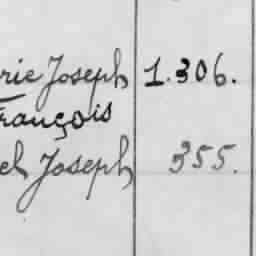 rie Joseph 1.306.
François
el Joseph 355.